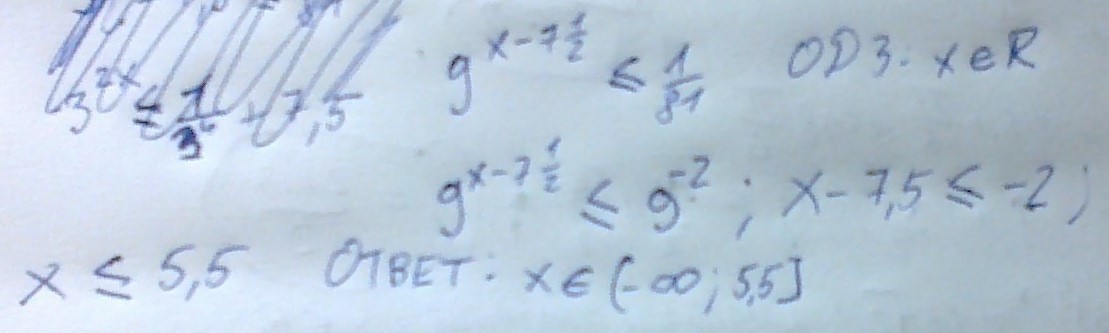 3^{2x} ≤ \frac{1}{3^4} + 7,5
9^{x-7\frac{1}{2}} ≤ \frac{1}{81} ОДЗ: x∈R
9^{x-7\frac{1}{2}} ≤ 9^{-2}; x-7,5 ≤ -2;
x ≤ 5,5 ОТВЕТ: x∈(-∞; 5,5]